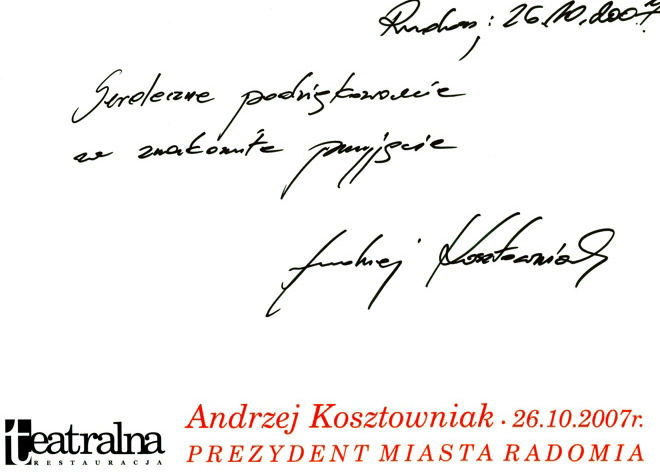 Radom, 26.10.2007r
Serdeczne podziękowanie
za znakomite przyjęcie
Andrzej Kosztowniak
Andrzej Kosztowniak · 26.10.2007r.
PREZYDENT MIASTA RADOMIA
teatralna
RESTAURACJA